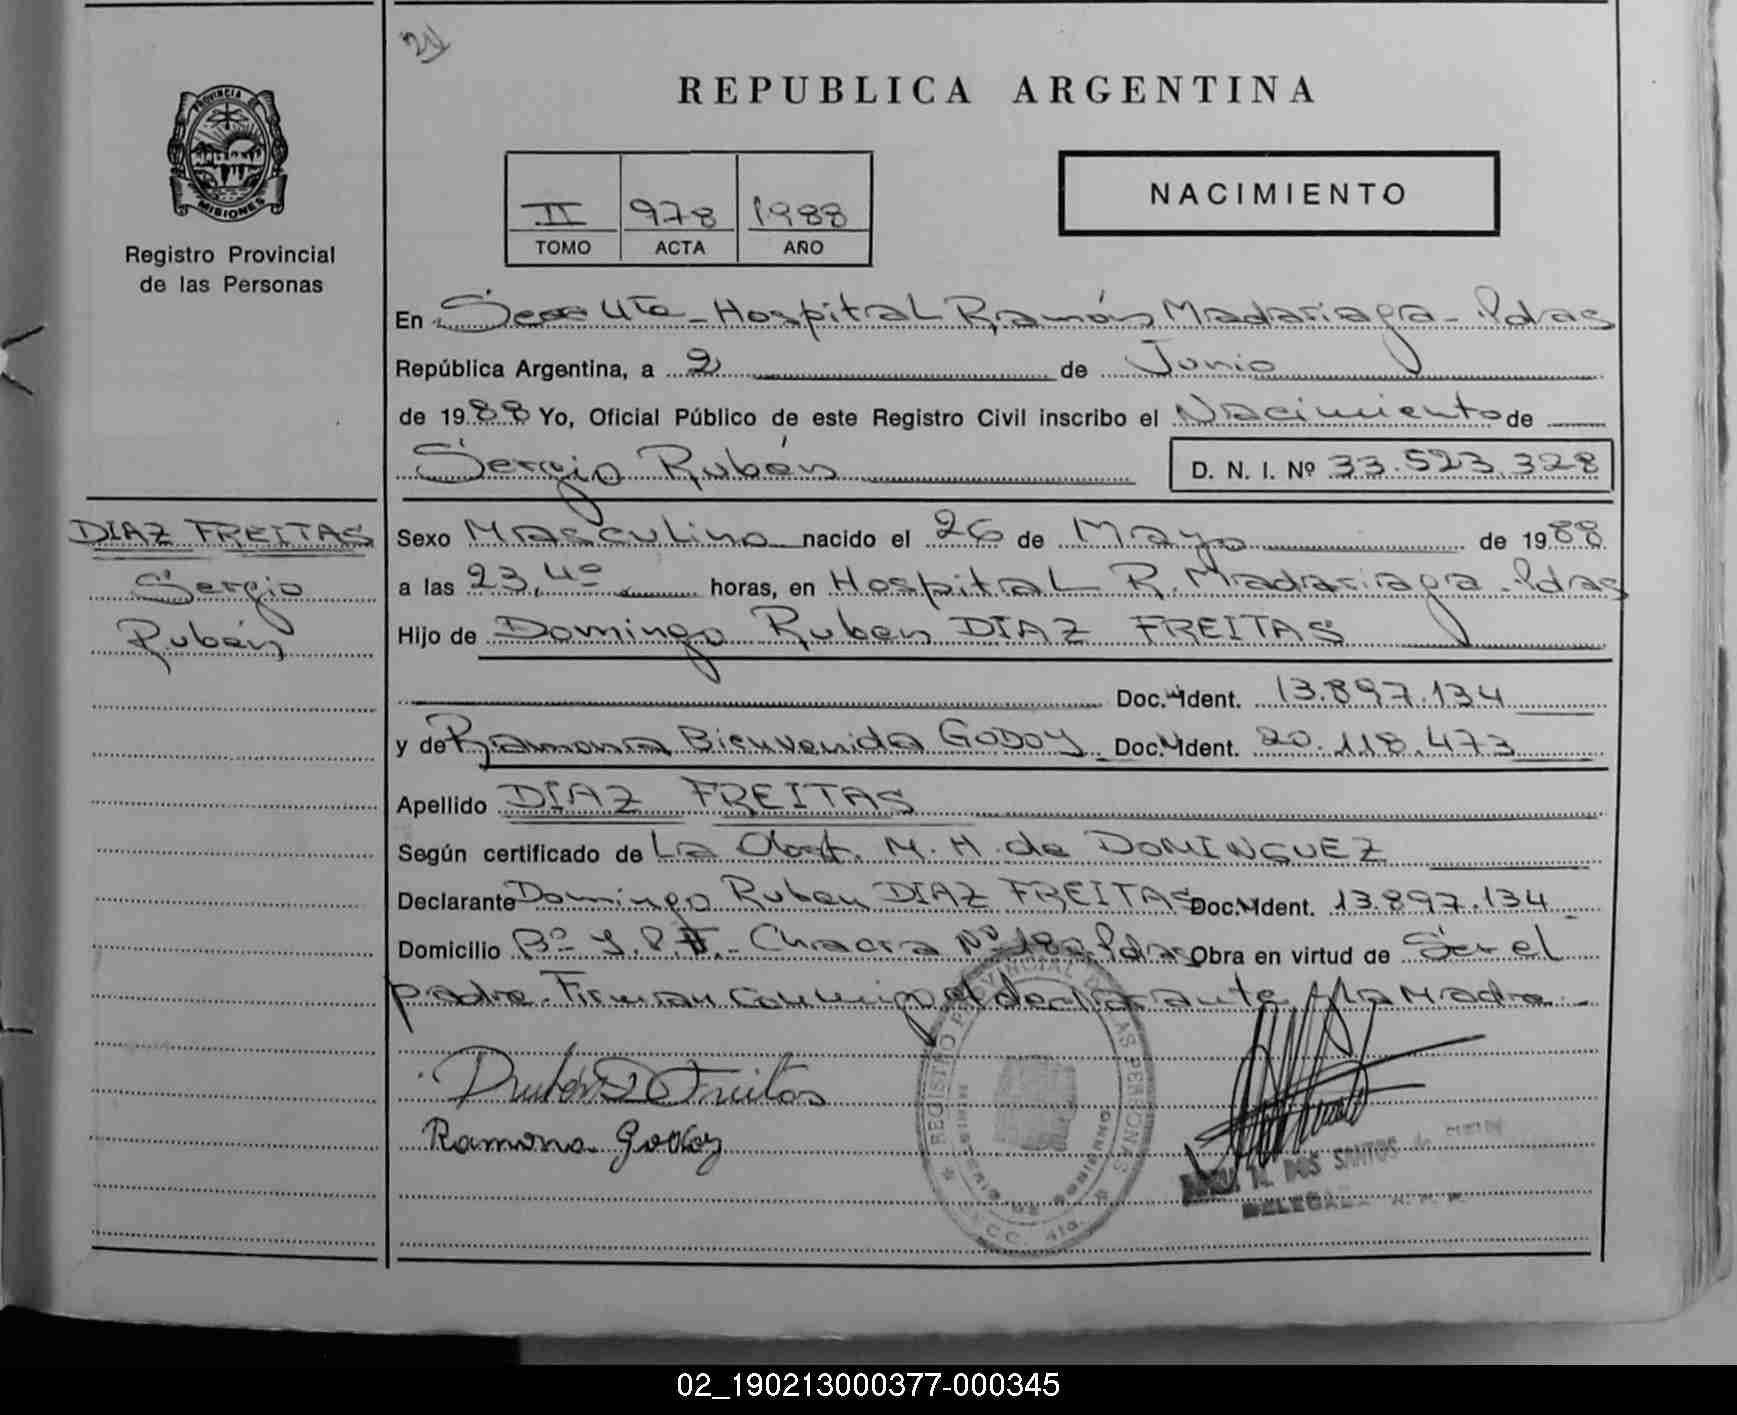 21
PROVINCIA DE
MISIONES
Registro Provincial
de las Personas
REPUBLICA ARGENTINA
II 978 1988
TOMO ACTA AÑO
NACIMIENTO
En Secc 4ta - Hospital Ramón Madariaga - Pdas
República Argentina, a 2 de Junio
de 1988 Yo, Oficial Público de este Registro Civil inscribo el Nacimiento de
Sergio Rubén D. N. I. Nº 33.523.328
DIAZ FREITAS
Sergio
Rubén
Sexo Masculino nacido el 26 de Mayo de 1988
a las 23,40 horas, en Hospital R. Madariaga - Pdas
Hijo de Domingo Ruben DIAZ FREITAS
Doc. Ident. 13.897.134
y de Ramona Bienvenida GODOY Doc. Ident. 20.118.473
Apellido DIAZ FREITAS
Según certificado de La Obst. M. H. de DOMINGUEZ
Declarante Domingo Ruben DIAZ FREITAS Doc. Ident. 13.897.134
Domicilio Bº Chacra Nº Pdas Obra en virtud de Ser el
padre. Firman conmigo el declarante y la Madre
Freitas
Ramona Godoy
REGISTRO PROVINCIAL DE LAS PERSONAS
MINISTERIO DE GOBIERNO
4ta.
DOS SANTOS de
DELEGADA
02_190213000377-000345